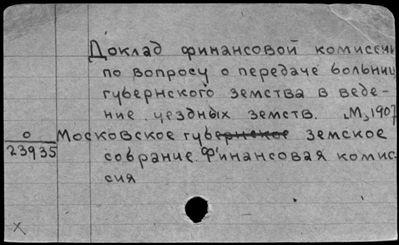 Доклад финансовой комиссии
по вопросу о передаче больниц
губернского земства в веде-
ние уездных земств. М, 1907
О
23935
Московское губернское земское
собрание. Финансовая комис-
сия
x